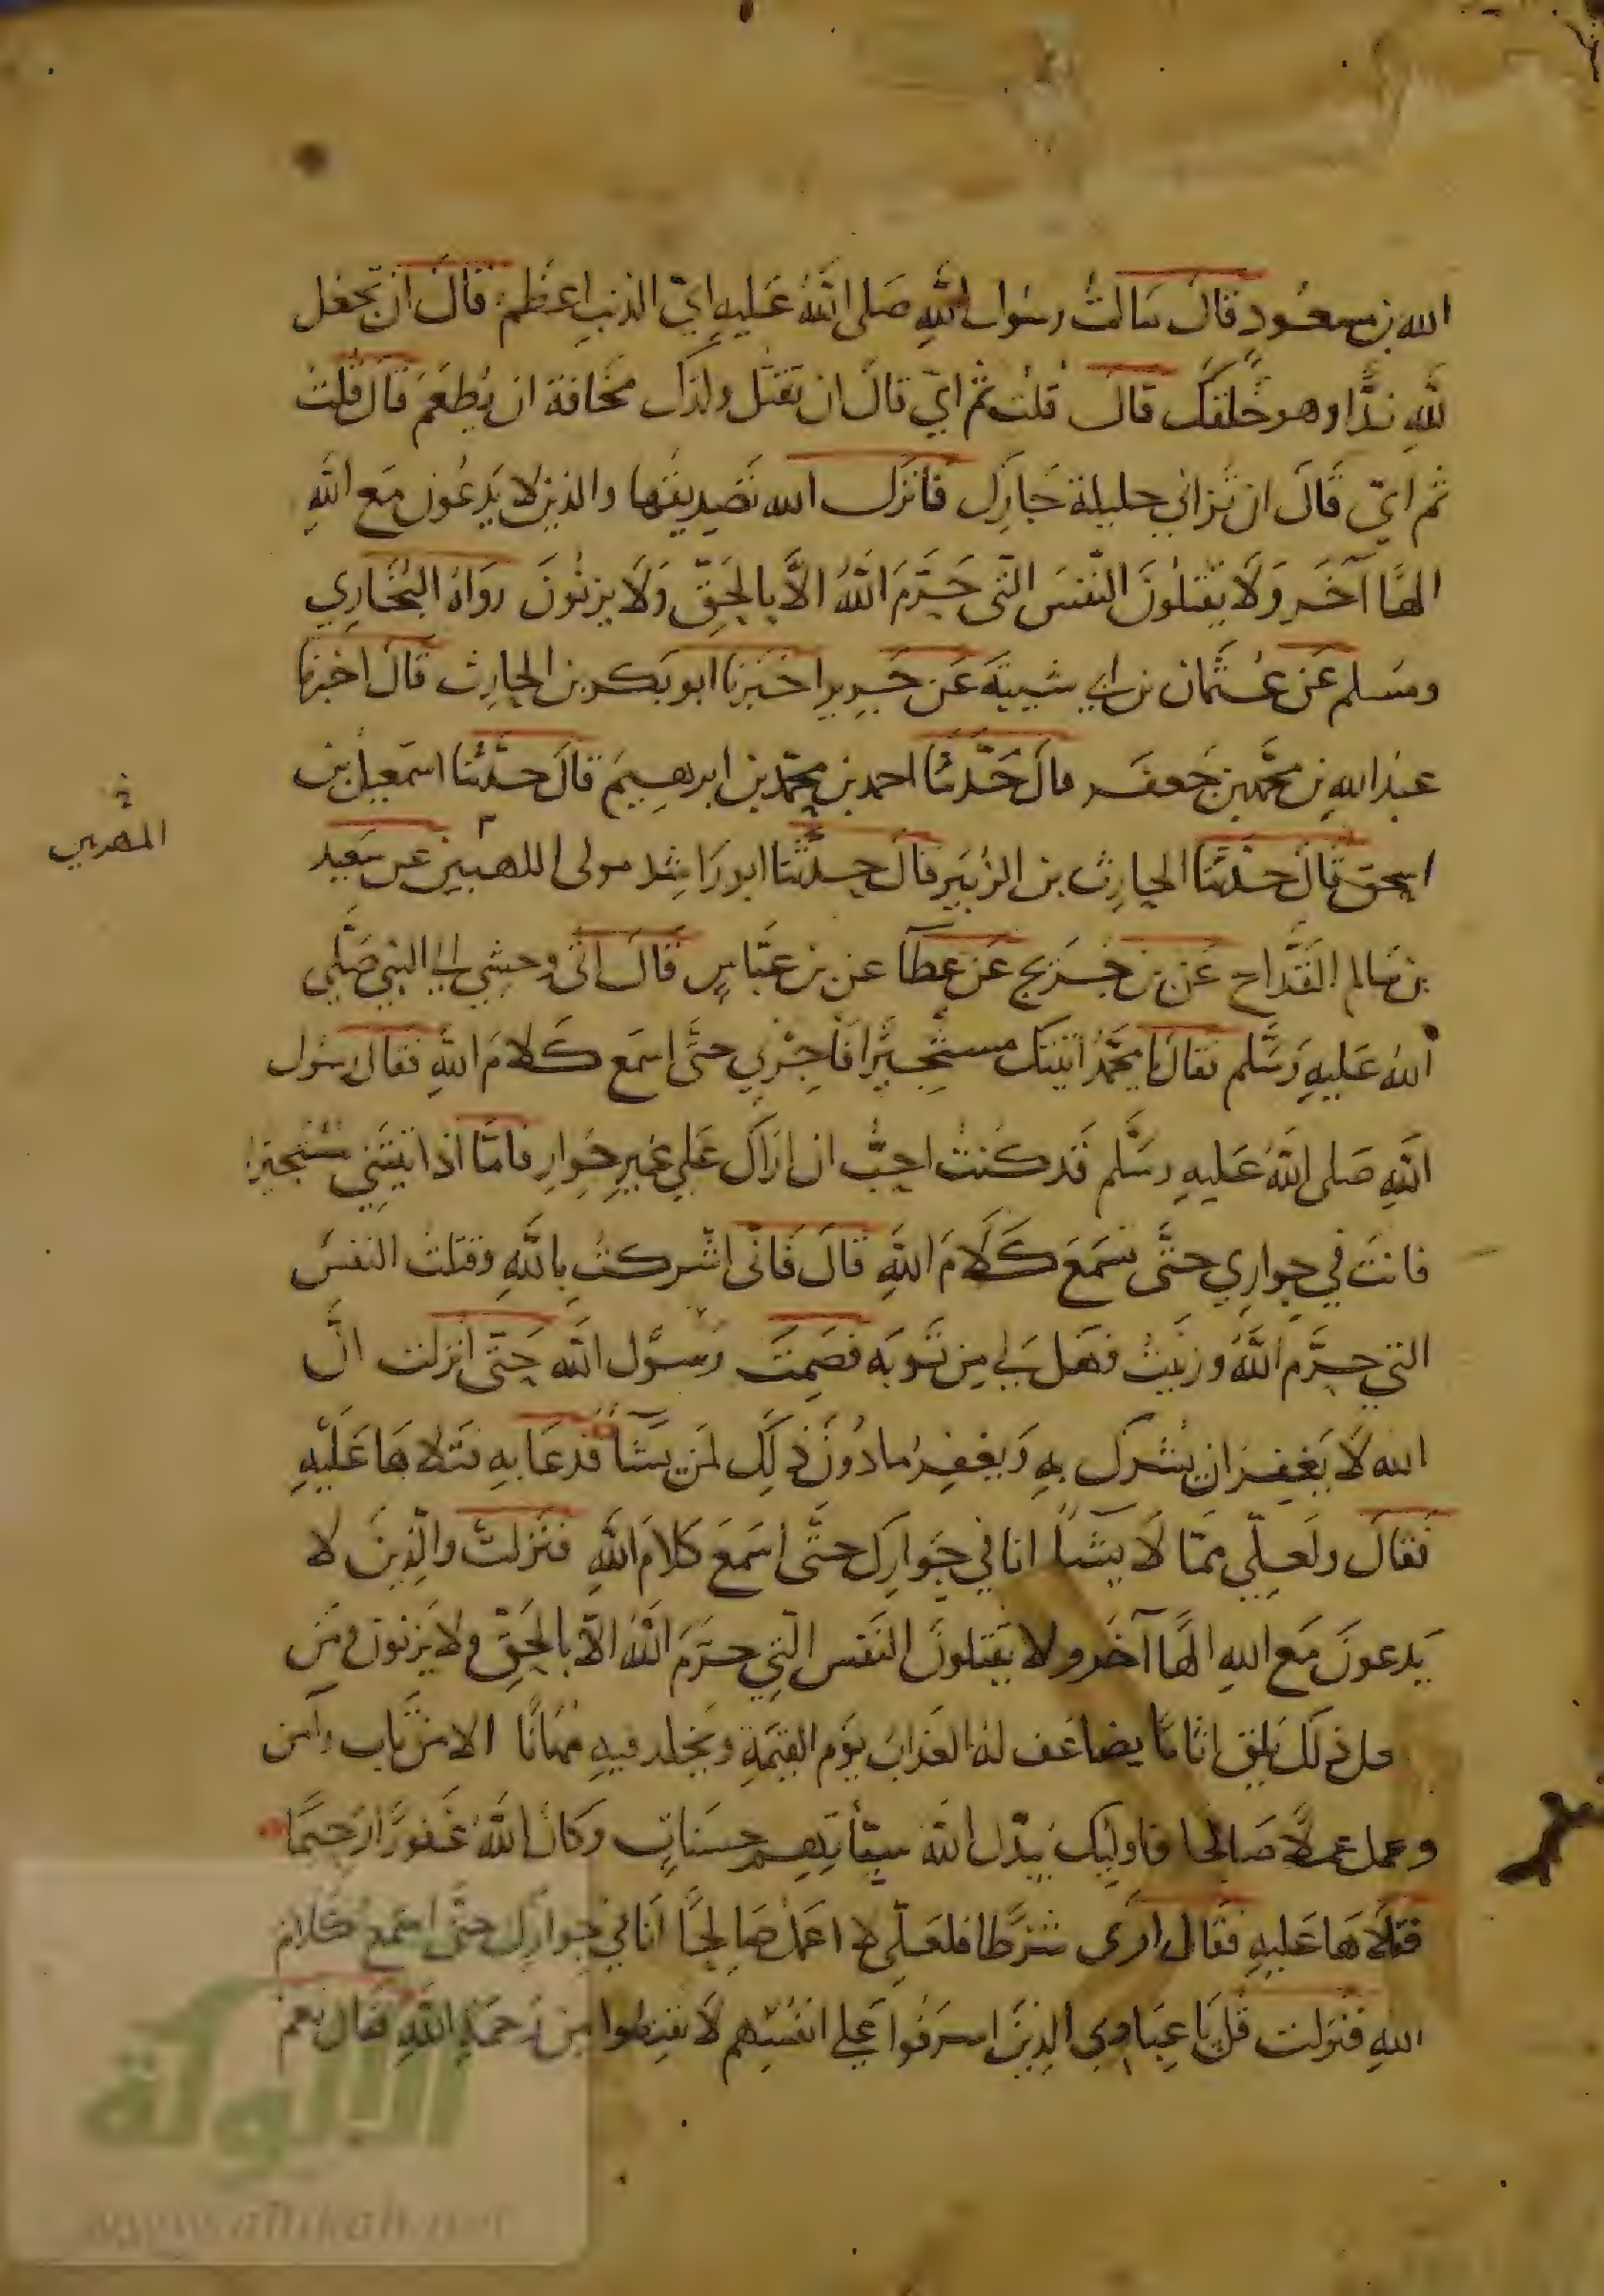 الله بن مسعود قال سالت رسول الله صلى الله عليه اي الذنب اعظم قال ان تجعل
لله ندا وهو خلقك قال قلت ثم اي قال ان تقتل ولدك مخافة ان يطعم قال قلت
ثم اي قال ان تزاني حليلة جارك فانزل الله تصديقها والذين لا يدعون مع الله
الها آخر ولا يقتلون النفس التى حرم الله الا بالحق ولا يزنون رواه البخاري
ومسلم عن عثمان بن ابي شيبة عن جرير اخبرنا ابو بكر بن الحارث قال اخبرنا
عبد الله بن محمد بن جعفر قال حدثنا احمد بن محمد بن ابرهيم قال حدثنا اسمعيل بن
اسحق قال حدثنا الحارث بن الزبير قال حدثنا ابو راشد مولى اللهبيين عن سعيد
المهريين
بن سالم القداح عن بن جريج عن عطآ عن بن عباس قال اتى وحشي الى النبي صلى
الله عليه وسلم فقال يا محمد اتيتك مستجيرا فاجرني حتى اسمع كلام الله فقال رسول
الله صلى الله عليه وسلم قد كنت احب ان اراك على غير جوار فاما اذا تيتني مستجيرا
فانت في جواري حتى تسمع كلام الله قال فانى اشركت بالله وقتلت النفس
التي حرم الله وزنيت فهل لي من توبة فصمت رسول الله حتى انزلت ان
الله لا يغفر ان يشرك به ويغفر ما دون ذلك لمن يشآ فدعا به فتلاها عليه
فقال ولعلي مما لا يشآ انا في جوارك حتى اسمع كلام الله فنزلت والذين لا
يدعون مع الله الها آخر ولا يقتلون النفس التي حرم الله الا بالحق ولا يزنون ومن
يفعل ذلك يلق اثاما يضاعف له العذاب يوم القيمة ويخلد فيه مهانا الا من تاب وآمن
وعمل عملا صالحا فاوليك يبدل الله سيأتهم حسنات وكان الله غفورا رحيما
فتلاها عليه فقال ارى شرطا فلعلي لا اعمل صالحا انا في جوارك حتى اسمع كلام
الله فنزلت قل يا عبادي الذين اسرفوا على انفسهم لا تقنطوا من رحمة الله فقال نعم
الألوكة
www.alukah.net